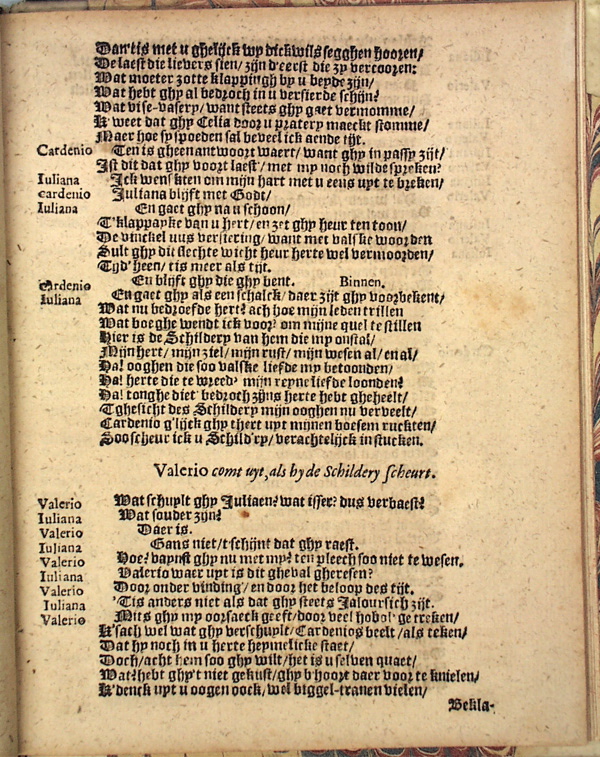 Dan'tis met u ghelijck wy dickwils segghen hooren/
De laest die lievers sien/ zijn d'eerst die zy vercooren:
Wat moeter zotte klappingh by u beyde zijn/
Wat hebt ghy al bedroch in u versierde schijn?
Wat vise-vasery/ want steets ghy gaet vermomme/
K'weet dat ghy Celia door u pratery maeckt stomme/
Maer hoe sy spoeden sal beveel ick aende tijt.
Cardenio Ten is gheen antwoort waert/ want ghy in passy zijt/
Ist dit dat ghy voort laest/ met my noch wilde spreken?
Iuliana Ick wens kten om mijn hart met u eens uyt te breken/
Cardenio Juliana blijft met Godt/
Iuliana En gaet ghy na u schoon/
T'klappayke van u hert/ en zet ghy heur ten toon/
De vinckel uus versiering/ want met valske woorden
Sult ghy dit slechte wicht heur herte wel vermoorden/
Tijd' heen/ tis meer als tijt.
Cardenio En blijft ghy die ghy bent. Binnen.
Iuliana En gaet ghy als een schalck/ daer zijt ghy voor bekent/
Wat nu bedroefde hert? ach hoe mijn leden trillen
Wat boeghe wendt ick voor? om mijne quel te stillen
Hier is de Schildery van hem die my onstal/
Mijn hert/ mijn ziel/ mijn rust/ mijn wesen al/ en al/
Ha! ooghen die soo valske liefde my betoonden/
Ha! herte die te wreed' mijn reyne liefde loonden?
Ha! tonghe diet' bedroch zijns herte hebt gheheelt/
Tghesicht des Schildery mijn ooghen nu verveelt/
Cardenio g'lijck ghy thert uyt mijnen boesem ruckten/
Soo scheur ick u Schild'ry/ verachtelijck in stucken.
Valerio comt uyt, als hy de Schildery scheurt.
Valerio Wat schuylt ghy Juliaen? wat isser? dus verbaest?
Iuliana Wat souder zijn?
Valerio Daer is.
Iuliana Gans niet/ t'schijnt dat ghy raest.
Valerio Hoe? vaynst ghy nu met my? ten pleech soo niet te wesen.
Iuliana Valerio waer uyt is dit gheval gheresen?
Valerio Door onder vinding/ en door het beloop des tijt.
Iuliana 'Tis anders niet als dat ghy steets Jaloursich zijt.
Valerio Mits ghy my oorsaeck geeft/ door veel hobol' ge treken/
K'sach wel wat ghy verschuylt/ Cardenios beelt/ als teken/
Dat hy noch in u herte heymelicke staet/
Doch/ acht hem soo ghy wilt/ het is u selven quaet/
Wat? hebt ghy't niet gekust/ ghy b'hoort daer voor te knielen/
K'denck uyt u oogen oock/ wel biggel-tranen vielen/
Bekla-